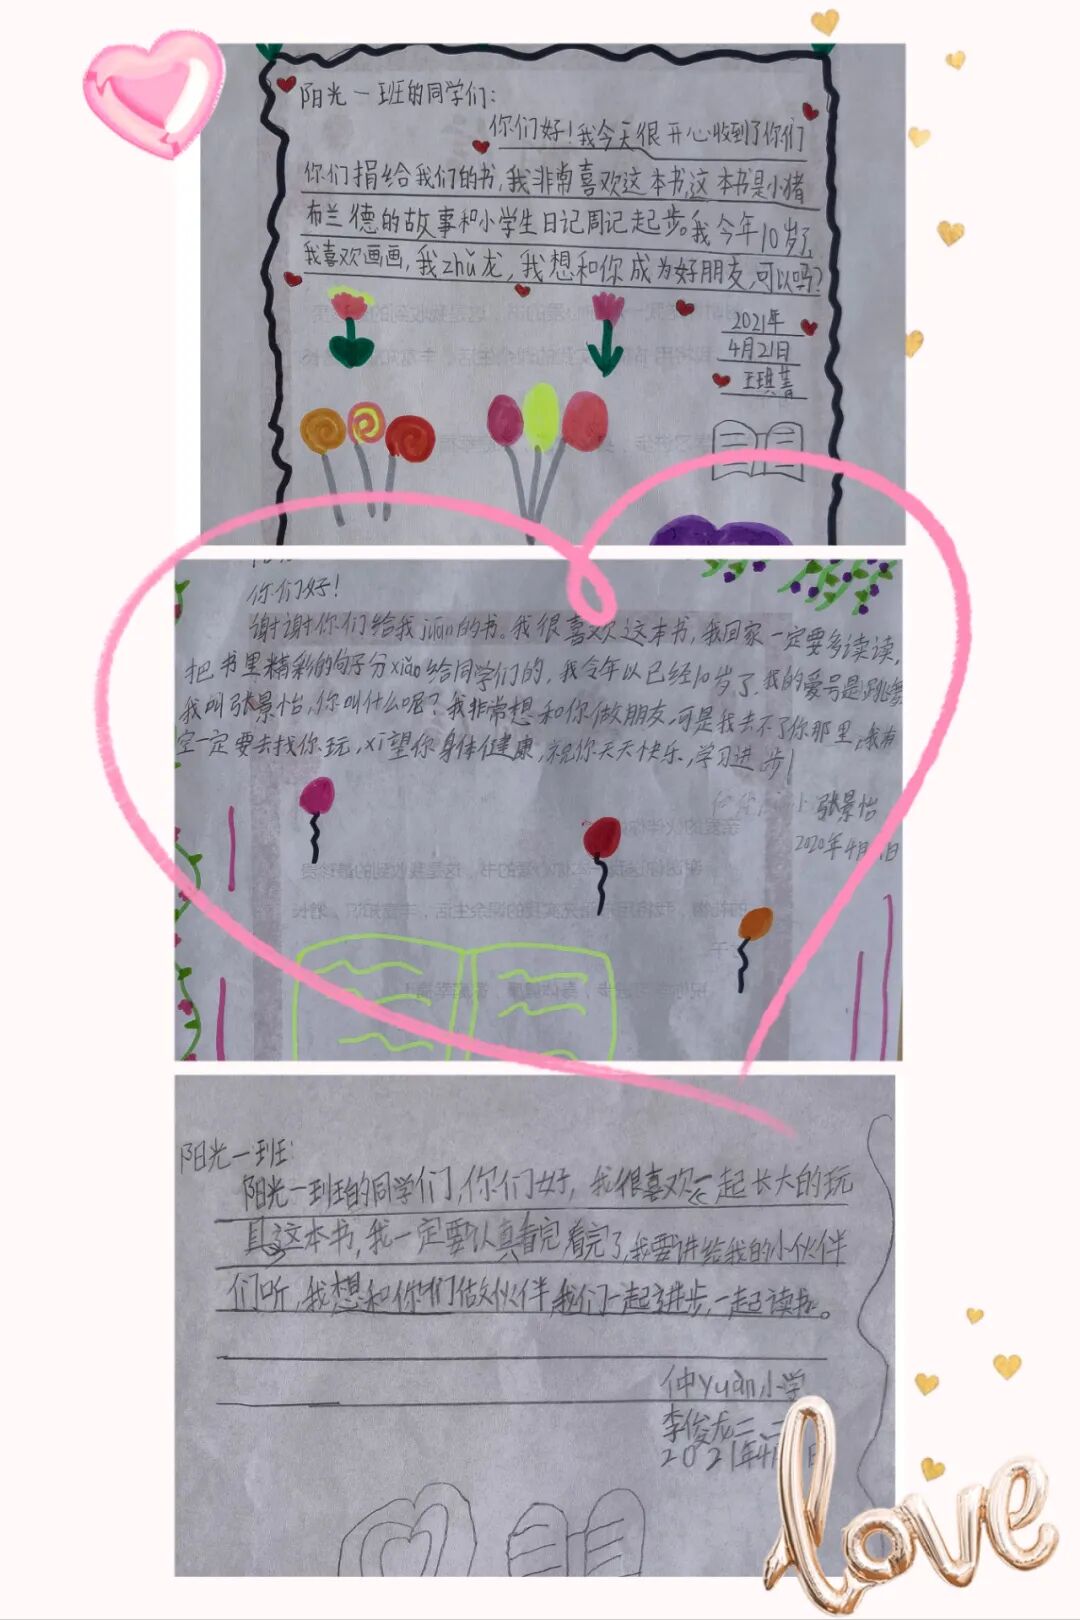 阳光一班的同学们：
你们好！我今天很开心收到了你们
你们捐给我们的书，我非常喜欢这本书，这本书是小猪
布兰德的故事和小学生日记周记起步。我今年10岁了，
我喜欢画画，我zhǔ龙，我想和你成为好朋友，可以吗？
2021年
4月21日
王琪菁
你们好！
谢谢你们给我juān的书。我很喜欢这本书，我回家一定要多读读，
把书里精彩的句子分xiǎo给同学们的，我今年以已经10岁了，我的爱号是跳舞
我叫张景怡，你叫什么呢？我非常想和你做朋友，可是我去不了你那里，我有
空一定要去找你玩，xī望你身体健康，祝你天天快乐，学习进步！
张景怡
2020年4月 日
阳光一班：
阳光一班的同学们，你们好，我很喜欢一起长大的玩
具这本书，我一定要认真看完看完了，我要讲给我的小伙伴
们听，我想和你们做伙伴，我们一起进步，一起读书。
仲yuàn小学
李俊龙二、二
2021年4月 日
love